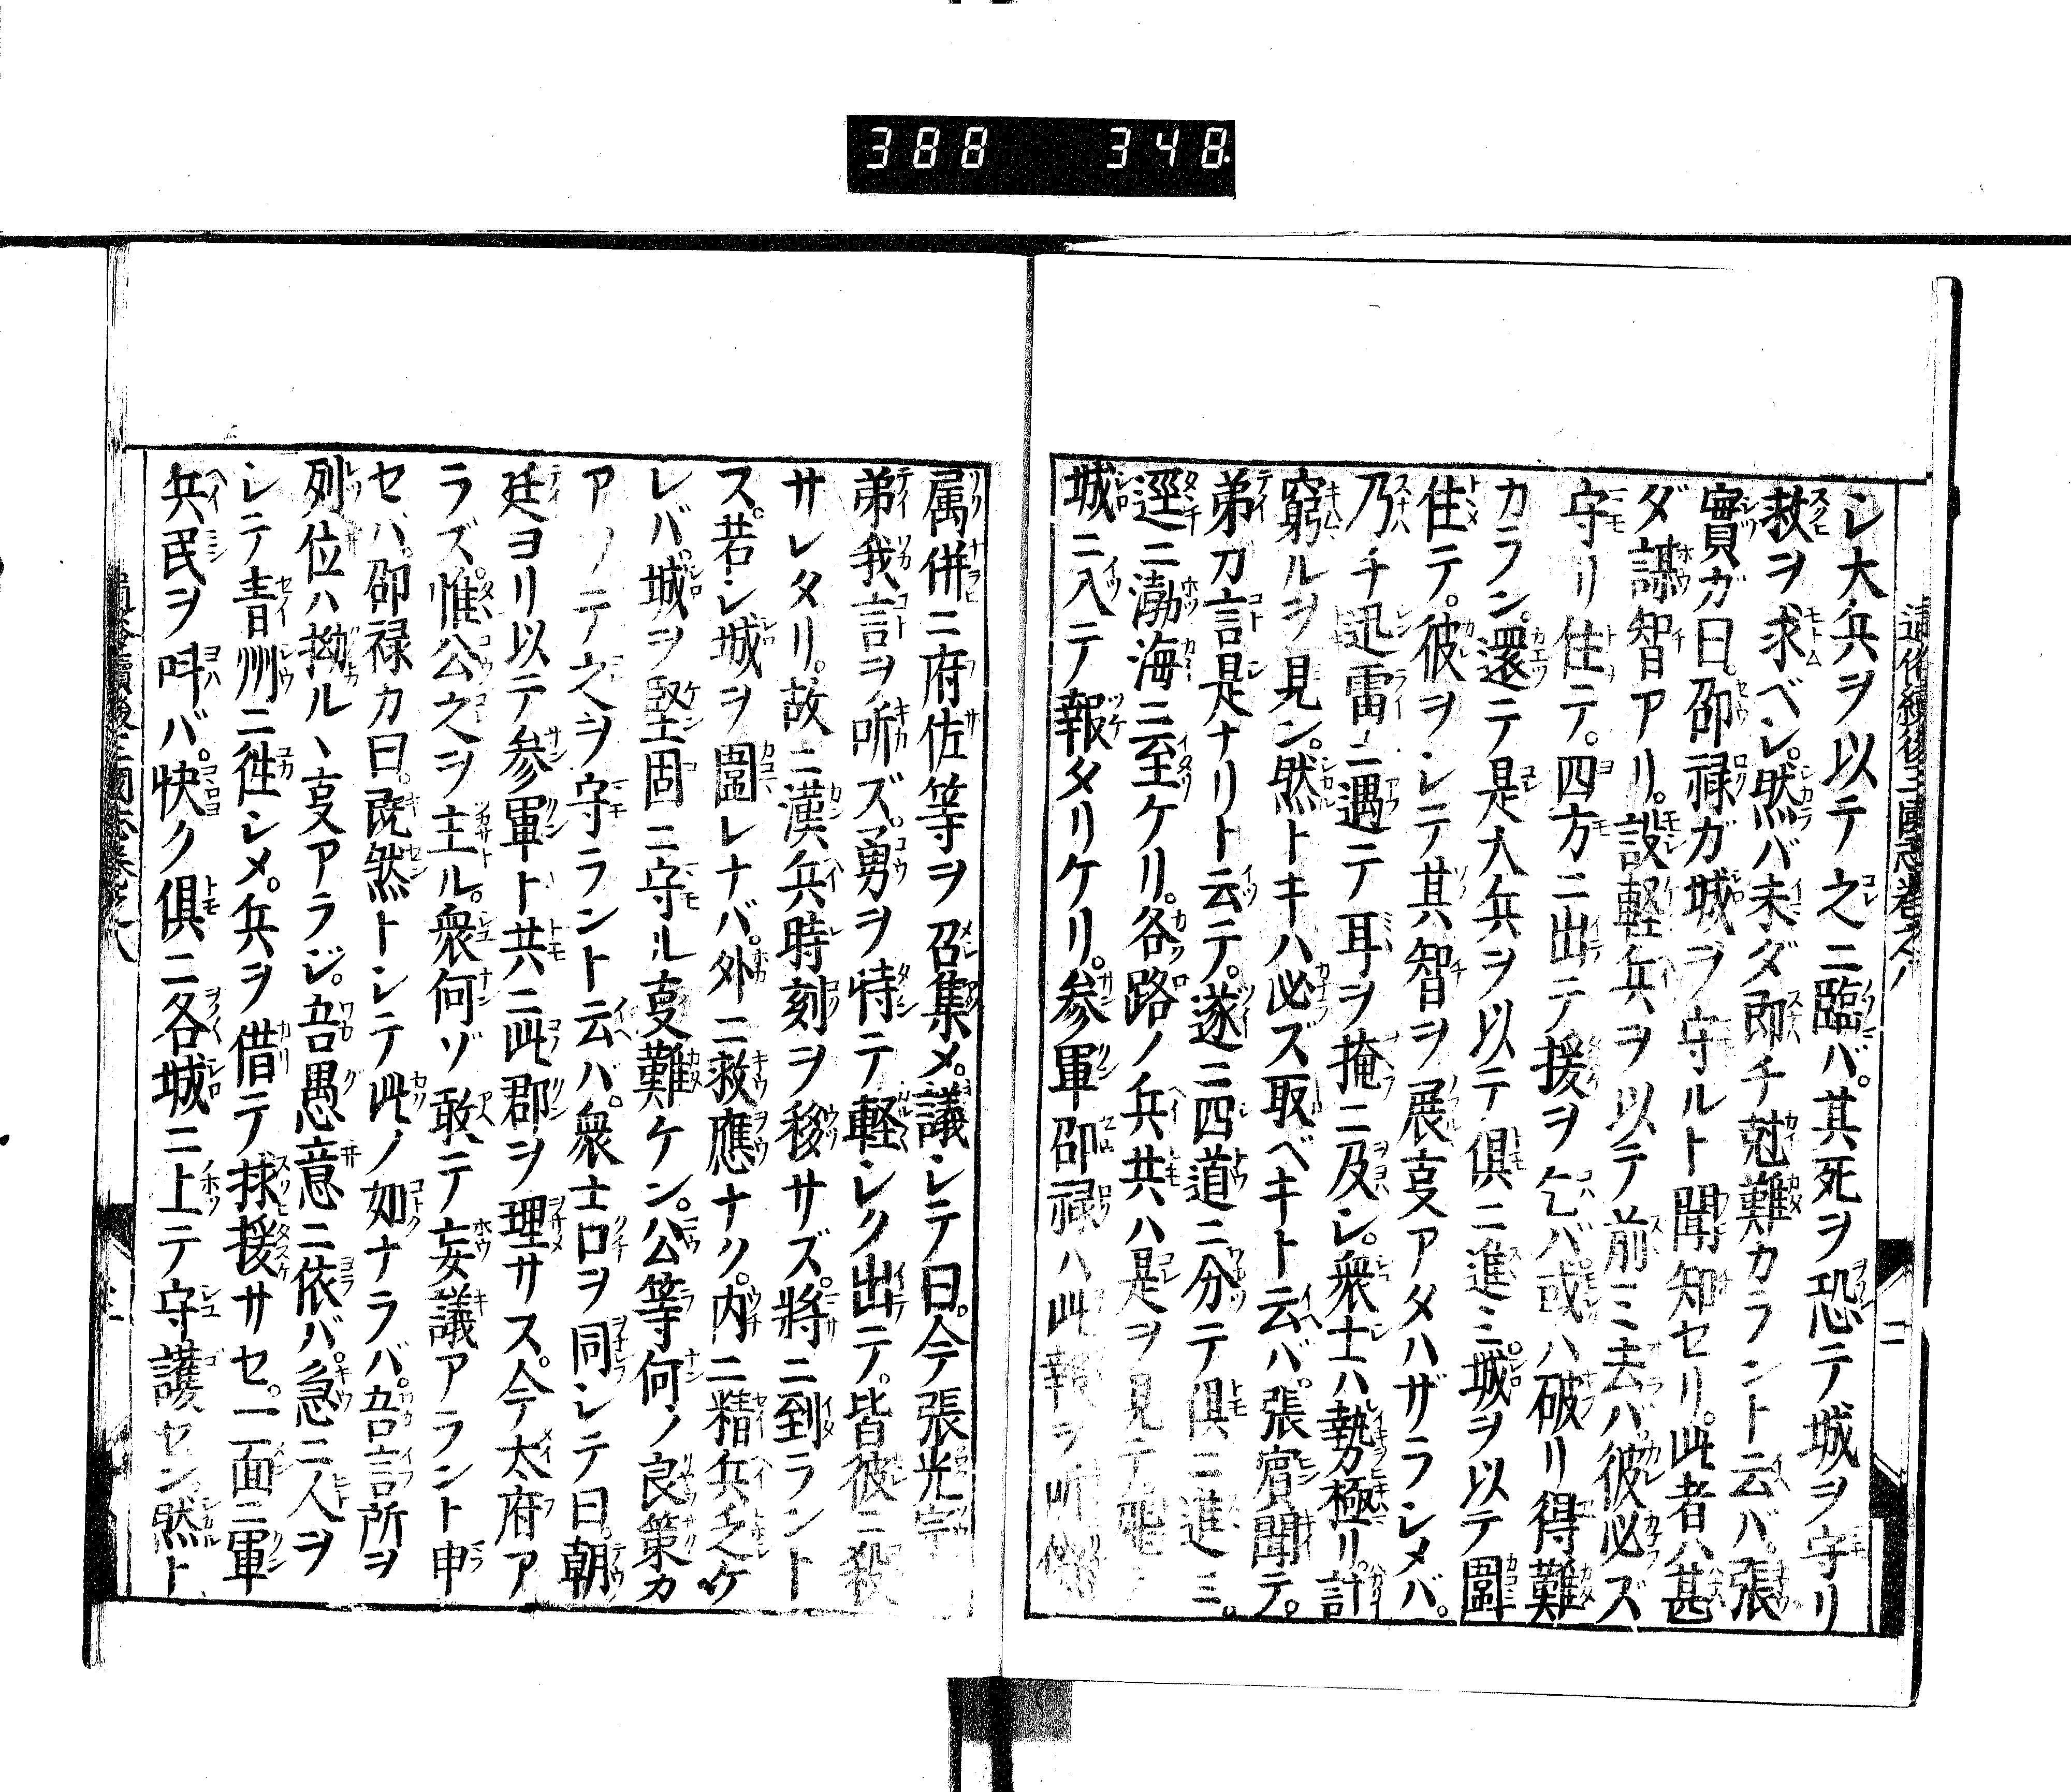 388 348
シ大兵ヲ以テ之ニ臨バ。其死ヲ恐テ城ヲ守リ
救ヲ求ベシ。然バ未ダ即チ尅難カラント云バ。張
實ガ曰。邵禄ガ城ヲ守ルト聞知セリ。此者ハ甚
ダ謀智アリ。設軽兵ヲ以テ前ミ去バ。彼必ズ
守リ住テ。四方ニ出テ援ヲ乞バ或ハ破リ得難
カラン。還テ是大兵ヲ以テ倶ニ進ミ城ヲ以テ圍
住テ。彼ヲシテ其智ヲ展叓アタハザラシメバ。
乃チ迅雷ニ遇テ耳ヲ掩ニ及シ。衆士ハ勢極リ。計
窮ルヲ見ン。然トキハ必ズ取ベキト云バ。張賓聞テ。
弟刀言是ナリト云テ。遂ニ四道ニ分テ倶ニ進ミ。
逕ニ渤海ニ至ケリ。各路ノ兵共ハ是ヲ見テ
城ニ入テ報タリケリ。参軍邵禄ハ此報ヲ听
属併ニ府佐等ヲ召集メ。議シテ曰。今張光
弟我言ヲ听ズ。勇ヲ恃テ軽シク出テ。皆彼ニ殺
サレタリ。故ニ漢兵時刻ヲ移サズ。將ニ到ラント
ス。若シ城ヲ圍レナバ。外ニ救應ナク。内ニ精兵乏ケ
レバ。城ヲ堅固ニ守ル叓難ケン。公等何ノ良策カ
アツテ之ヲ守ラント云バ。衆士口ヲ同シテ曰。朝
廷ヨリ以テ参軍ト共ニ此郡ヲ理サス。今太府ア
ラズ。惟公之ヲ主ル。衆何ゾ敢テ妄議アラント申
セバ。邵禄カ曰。既然トシテ此ノ如ナラバ。吾言所ヲ
列位ハ拗ルヽ叓アラジ。吾愚意ニ依バ。急ニ人ヲ
シテ青州ニ徃シメ。兵ヲ借テ救援サセ。一面ニ軍
兵民ヲ呌バ。快ク倶ニ各城ニ上テ守護セン然ト